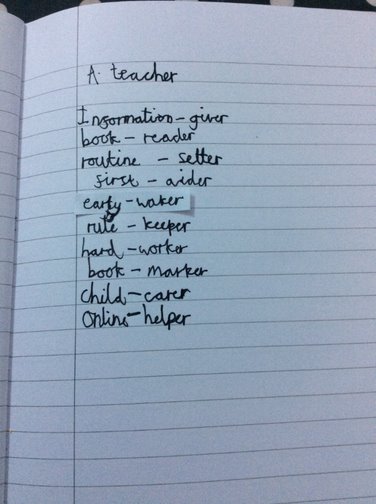 A teacher
Information-giver
book-reader
routine - setter
first-aider
early-waker
rule-keeper
hard-worker
book-marker
child-carer
Online-helper